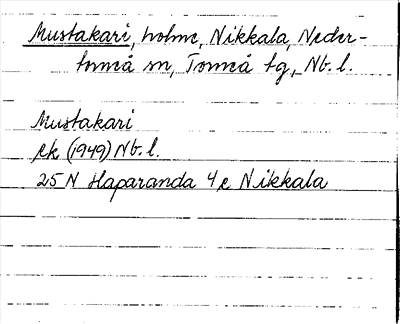 Mustakari, holme, Nikkala, Neder-
torneå sn, Torneå tg, Nb. l.
Mustakari
rk (1949) Nb. l.
25 N Haparanda 4 e Nikkala